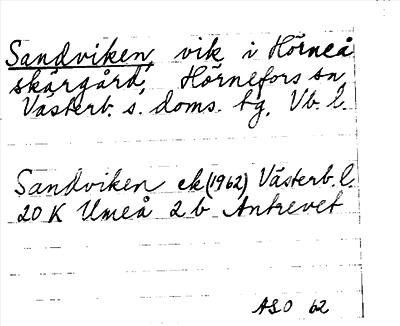 Sandviken, vik i Hörneå
skärgård, Hörnefors sn,
Västerb. s. doms. tg. Vb. l.
Sandviken ek (1962) Västerb. l.
20 K Umeå 2 b Antrevet
ASO 62